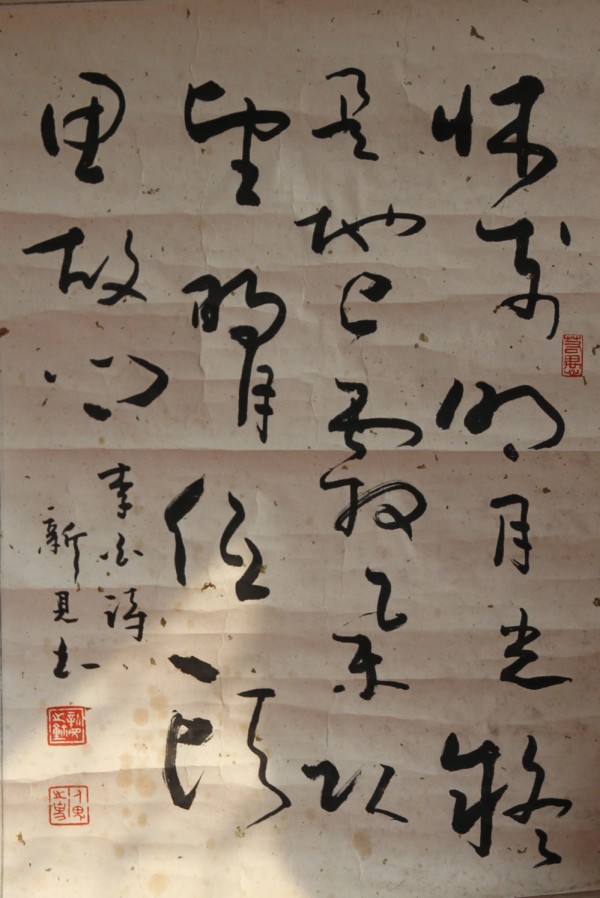 牀前明月光疑
是地上霜舉頭
望明月低頭
思故鄉
李白詩
新見書